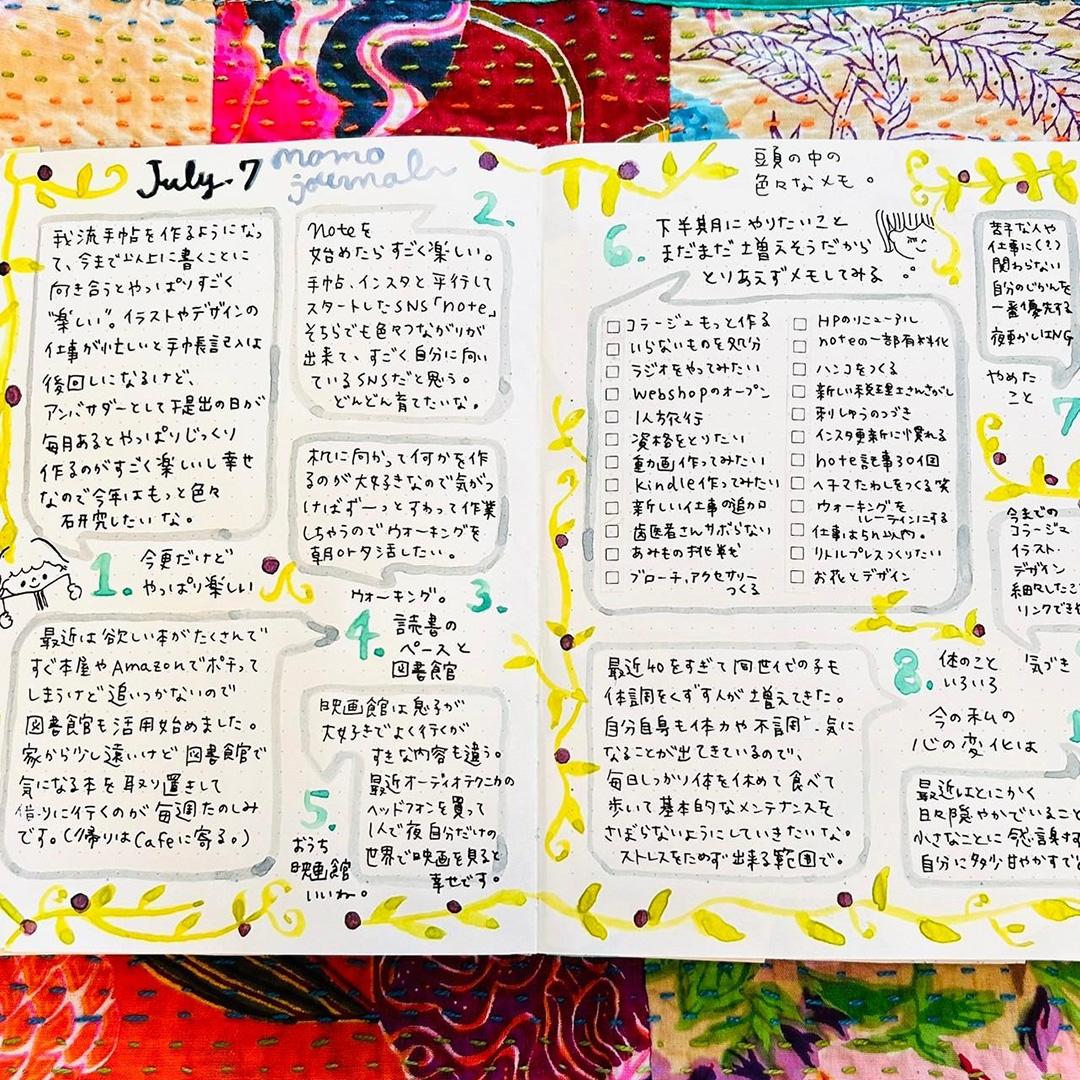 July.7
momo
journal
我流手帖を作るようになっ
て、今まで以上に書くことに
向き合うとやっぱりすごく
"楽しい"。イラストやデザインの
仕事が忙しいと手帳記入は
後回しになるけど、
アンバサダーとして提出の日が
毎月あるとやっぱりじっくり
作るのがすごく楽しいし幸せ
なので今年はもっと色々
研究したいな。
1. 今更だけど
やっぱり楽しい
2.
noteを
始めたらすごく楽しい。
手帖、インスタと平行して
スタートしたSNS「note」
そちらでも色々つながりが
出来て、すごく自分に向い
ているSNSだと思う。
どんどん育てたいな。
机に向かって何かを作
るのが大好きなので気がつ
けばずーっとすわって作業
しちゃうのでウォーキングを
朝or夕活したい。
ウォーキング。 3.
4. 読書の
ペースと
図書館
最近は欲しい本がたくさんで
すぐ本屋やAmazonでポチって
しまうけど追いつかないので
図書館も活用始めました。
家から少し遠いけど図書館で
気になる本を取り置きして
借りに行くのが毎週たのしみ
です。(帰りはCafeに寄る。)
映画館は息子が
大好きでよく行くが
すきな内容も違う。
最近オーディオテクニカの
ヘッドフォンを買って
1人で夜自分だけの
世界で映画を見ると
幸せです。
5.
おうち
映画館
いいね。
頭の中の
色々なメモ。
6. 下半期にやりたいこと
まだまだ増えそうだから
とりあえずメモしてみる
コラージュもっと作る
いらないものを処分
ラジオをやってみたい
webshopのオープン
1人旅行
資格をとりたい
動画作ってみたい
kindle作ってみたい
新しい仕事の追加
歯医者さんサボらない
あみもの挑戦
ブローチ,アクセサリー
つくる
HPのリニューアル
noteの一部有料化
ハンコをつくる
新しい税理士さんさがし
刺しゅうのつづき
インスタ更新に慣れる
note記事30個
ヘチマたわしをつくる笑
ウォーキングを
ルーティンにする
仕事は5h以内。
リトルプレスつくりたい
お花とデザイン
苦手な人や
仕事に(?)
関わらない
自分のじかんを
一番優先する
夜更かしING
やめた
こと 7
今までの
コラージュ
イラスト・
デザイン
細々したこ
リンクでき
気づき
8. 体のこと
いろいろ
最近40をすぎて同世代の子も
体調をくずす人が増えてきた。
自分自身も体力や不調が気に
なることが出てきているので、
毎日しっかり体を休めて食べて
歩いて基本的なメンテナンスを
さぼらないようにしていきたいな。
ストレスをためず出来る範囲で。
今の私の
心の変化は
最近はとにかく
日々穏やかでいること
小さなことに感謝する
自分に多少甘やかすで